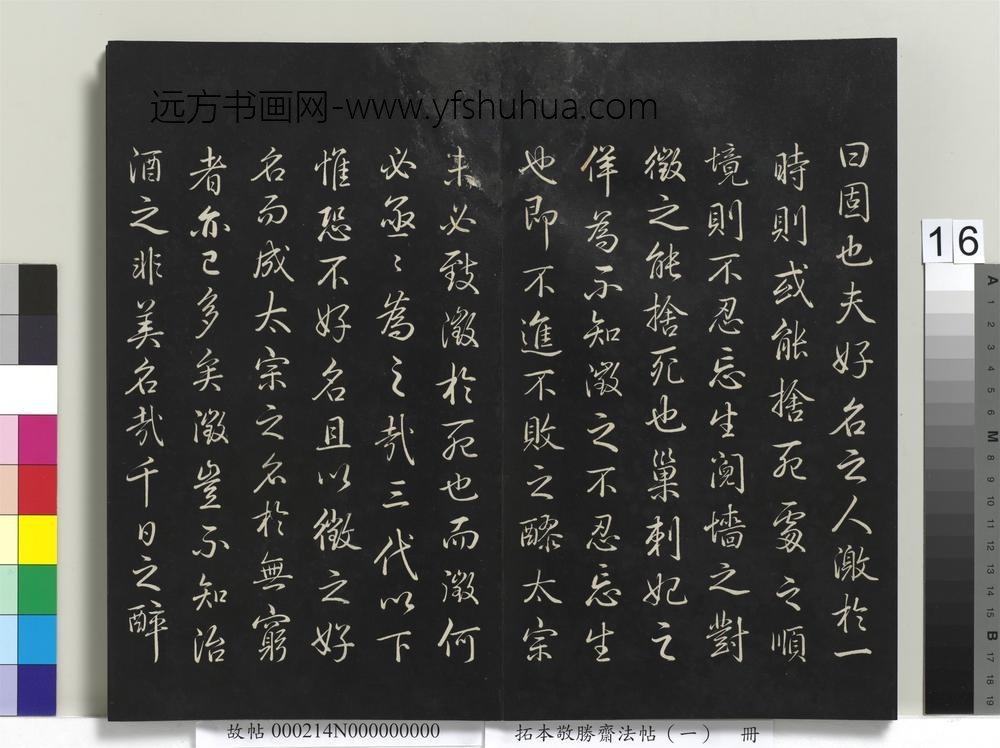 远方书画网-www.yfshuhua.com
曰固也夫好名之人激於一
時則或能捨死處之順
境則不忍忘生鬩墻之對
徵之能捨死也巢刺妃之
佯為不知徵之不忍忘生
也即不進不敗之醪太宗
未必致徵於死也而徵何
必亟〻為之哉三代以下
惟恐不好名且以徵之好
名而成太宗之名於無窮
者亦已多矣徵豈不知治
酒之非美名哉千日之醉
16
A 1 2 3 4 5 6 M 8 9 10 11 12 13 14 15 B 17 18 19
故帖 000214N000000000
拓本敬勝齋法帖（一） 冊